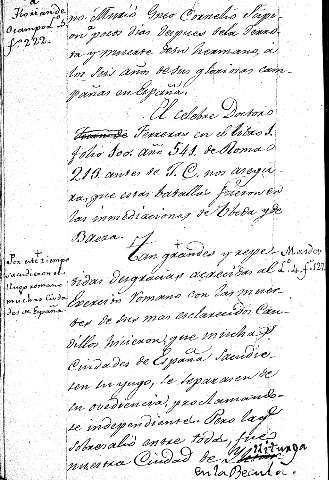 a
Florian de
Ocampo L.º 5.
f.º 222.
no. Murió Gneo Cornelio Scipi-
on pocos dias despues de la derro-
ta y muerte de su hermano, a
los seis años de sus gloriosas cam-
pañas en España.
El celebre Doctor
Ferreras en el libro 1.
folio 100. año 541. de Roma
213. antes de J. C. nos asegu-
ra, que estas batallas fueron en
las inmediaciones de Ubeda y de
Baeza.
Por este tiempo
sacudieron el
yugo romano
muchas Ciuda
des de España
Tan grandes y repe-
tidas desgracias acaecidas al
Exercito romano con las muer-
tes de sus mas esclarecidos Cau-
dillos hicieron, que muchas
Ciudades de España sacudie-
sen su yugo, se separasen de
su ovediencia, proclamando-
se independiente. Pero la q.e
sobresalió entre todas, fue
nuestra Ciudad de Iliturgi
en la Becula.
L.º 4. f.º 127.